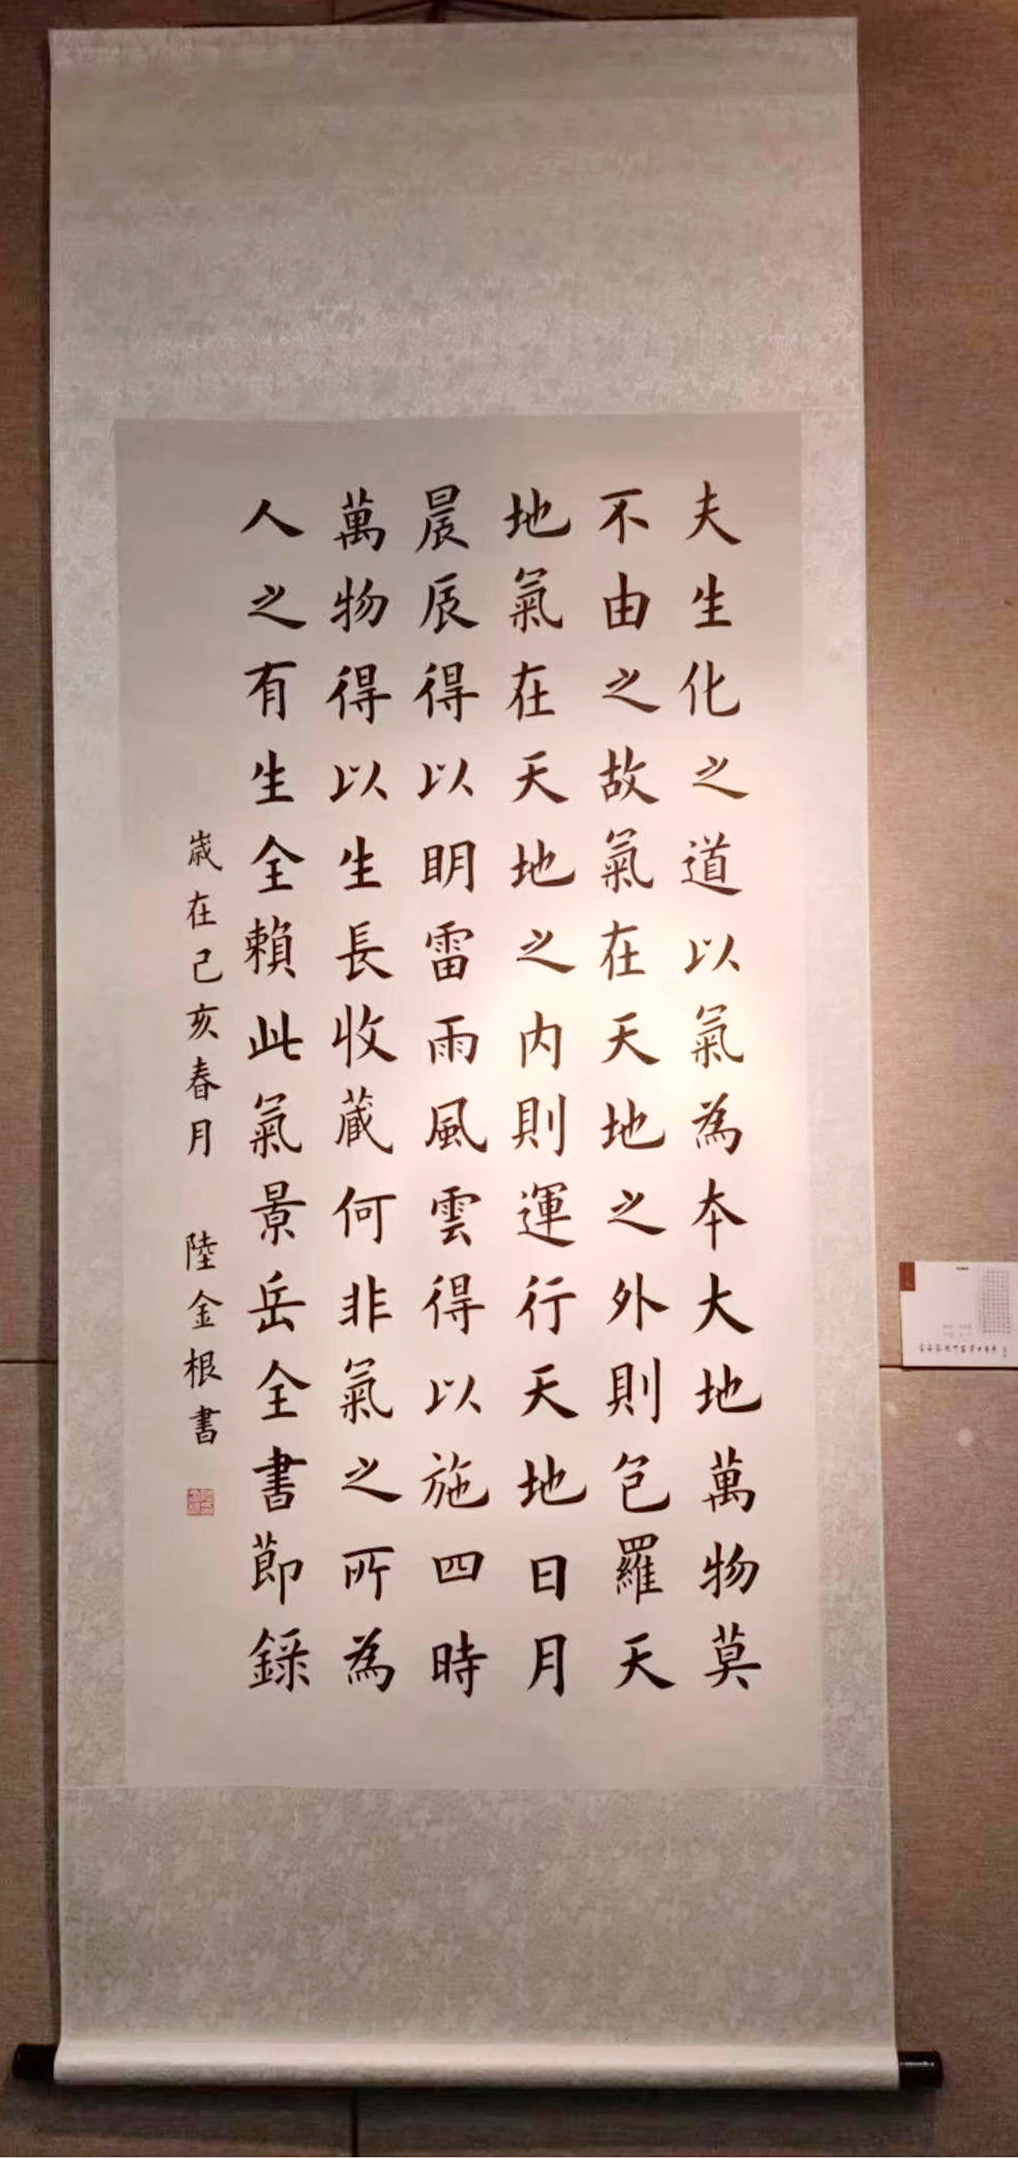 夫生化之道以氣為本大地萬物莫
不由之故氣在天地之外則包羅天
地氣在天地之内則運行天地日月
晨辰得以明雷雨風雲得以施四時
萬物得以生長收蔵何非氣之所為
人之有生全賴此氣景岳全書節錄
歲在己亥春月 陸金根書